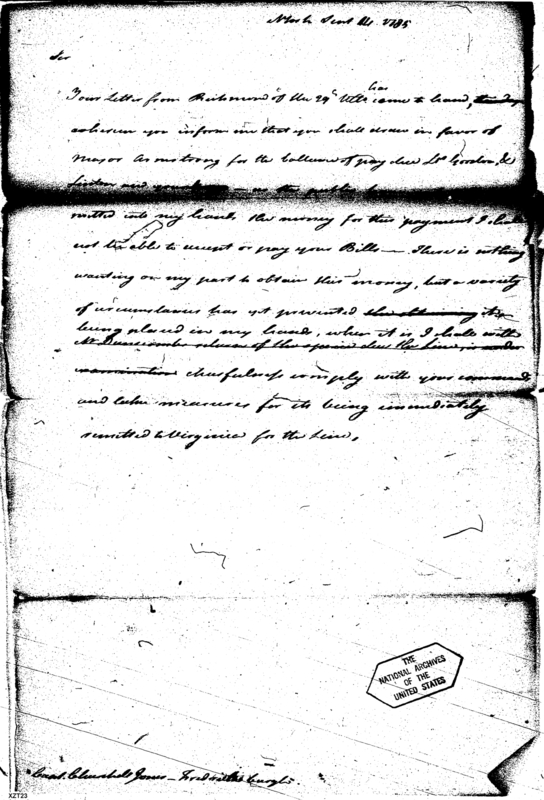 Sept 14 1785
Sir
Your Letter from Richmond of the 29th Ulto has come to hand,
wherein you inform me that you shall draw in favor of
Major Armstrong for the ballance of pay due Lts Gordon, &
mitted into my hands the money for this payment I shall
not be able to accept or pay your Bills — There is nothing
wanting on my part to obtain this money, but a variety
of circumstances has yet prevented the obtaining it
being placed in my hands, when it is I shall with
of the due the Line,
chearfulness comply with your command
and take measures for its being immediately
remitted to Virginia for the Line.
THE
NATIONAL ARCHIVES
OF THE
UNITED STATES
Capt. Churchill Jones — Fredericksburgh.
XZT23